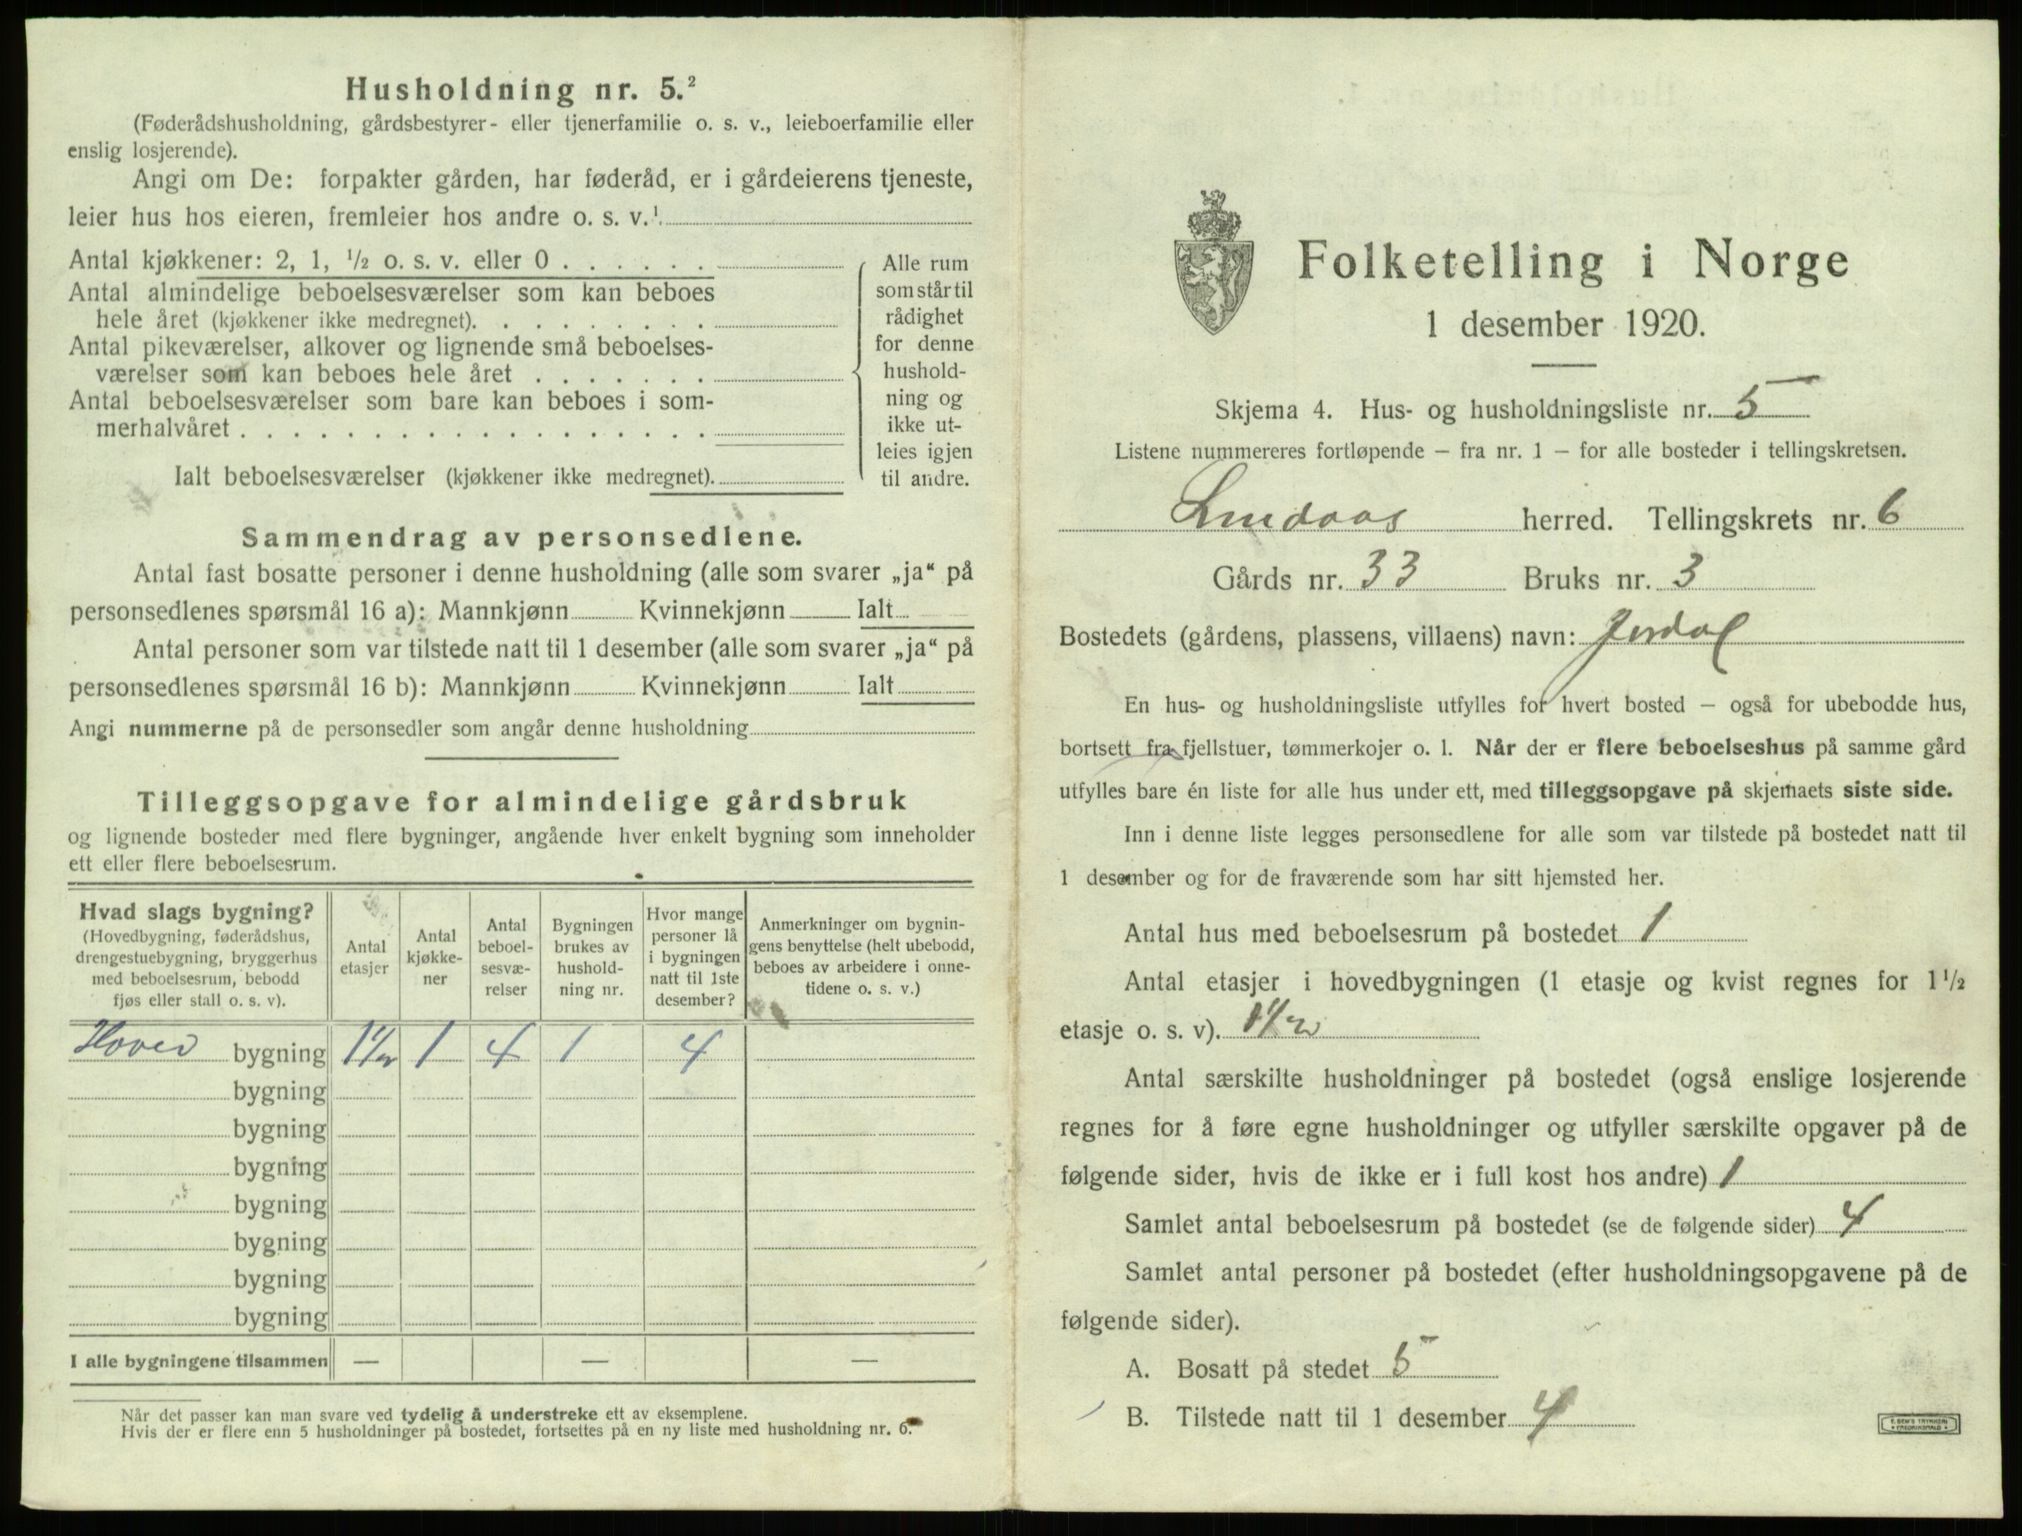 Husholdning nr. 5.²
(Føderådshusholdning, gårdsbestyrer- eller tjenerfamilie o. s. v., leieboerfamilie eller
enslig losjerende).
Angi om De: forpakter gården, har føderåd, er i gårdeierens tjeneste,
leier hus hos eieren, fremleier hos andre o. s. v.¹
Antal kjøkkener: 2, 1, ½ o. s. v. eller 0 . . . . . .
Antal almindelige beboelsesværelser som kan beboes
hele året (kjøkkener ikke medregnet). . . . . . . . .
Antal pikeværelser, alkover og lignende små beboelses-
værelser som kan beboes hele året . . . . . . .
Antal beboelsesværelser som bare kan beboes i som-
merhalvåret . . . . . . . . . . . . . . . . . .
Ialt beboelsesværelser (kjøkkener ikke medregnet).
Alle rum
som står til
rådighet
for denne
hushold-
ning og
ikke ut-
leies igjen
til andre.
Sammendrag av personsedlene.
Antal fast bosatte personer i denne husholdning (alle som svarer „ja“ på
personsedlenes spørsmål 16 a): Mannkjønn Kvinnekjønn Ialt
Antal personer som var tilstede natt til 1 desember (alle som svarer „ja“ på
personsedlenes spørsmål 16 b): Mannkjønn Kvinnekjønn Ialt
Angi nummerne på de personsedler som angår denne husholdning
Tilleggsopgave for almindelige gårdsbruk
og lignende bosteder med flere bygninger, angående hver enkelt bygning som inneholder
ett eller flere beboelsesrum.
Hvad slags bygning?
(Hovedbygning, føderådshus,
drengestuebygning, bryggerhus
med beboelsesrum, bebodd
fjøs eller stall o. s. v).
Antal
etasjer
Antal
kjøkke-
ner
Antal
beboel-
sesvæ-
relser
Bygningen
brukes av
hushold-
ning nr.
Hvor mange
personer lå
i bygningen
natt til 1ste
desember?
Anmerkninger om bygnin-
gens benyttelse (helt ubebodd,
beboes av arbeidere i onne-
tidene o. s. v.)
Hoved bygning 1½ 1 4 1 4
bygning
bygning
bygning
bygning
bygning
bygning
bygning
I alle bygningene tilsammen — — —
Når det passer kan man svare ved tydelig å understreke ett av eksemplene.
Hvis der er flere enn 5 husholdninger på bostedet, fortsettes på en ny liste med husholdning nr. 6.
Folketelling i Norge
1 desember 1920.
Skjema 4. Hus- og husholdningsliste nr. 5
Listene nummereres fortløpende – fra nr. 1 – for alle bosteder i tellingskretsen.
Lindaas herred. Tellingskrets nr. 6
Gårds nr. 33 Bruks nr. 3
Bostedets (gårdens, plassens, villaens) navn: Jordal
En hus- og husholdningsliste utfylles for hvert bosted – også for ubebodde hus,
bortsett fra fjellstuer, tømmerkojer o. l. Når der er flere beboelseshus på samme gård
utfylles bare én liste for alle hus under ett, med tilleggsopgave på skjemaets siste side.
Inn i denne liste legges personsedlene for alle som var tilstede på bostedet natt til
1 desember og for de fraværende som har sitt hjemsted her.
Antal hus med beboelsesrum på bostedet 1
Antal etasjer i hovedbygningen (1 etasje og kvist regnes for 1½
etasje o. s. v). 1½
Antal særskilte husholdninger på bostedet (også enslige losjerende
regnes for å føre egne husholdninger og utfyller særskilte opgaver på de
følgende sider, hvis de ikke er i full kost hos andre) 1
Samlet antal beboelsesrum på bostedet (se de følgende sider) 4
Samlet antal personer på bostedet (efter husholdningsopgavene på de
følgende sider).
A. Bosatt på stedet 5
B. Tilstede natt til 1 desember 4